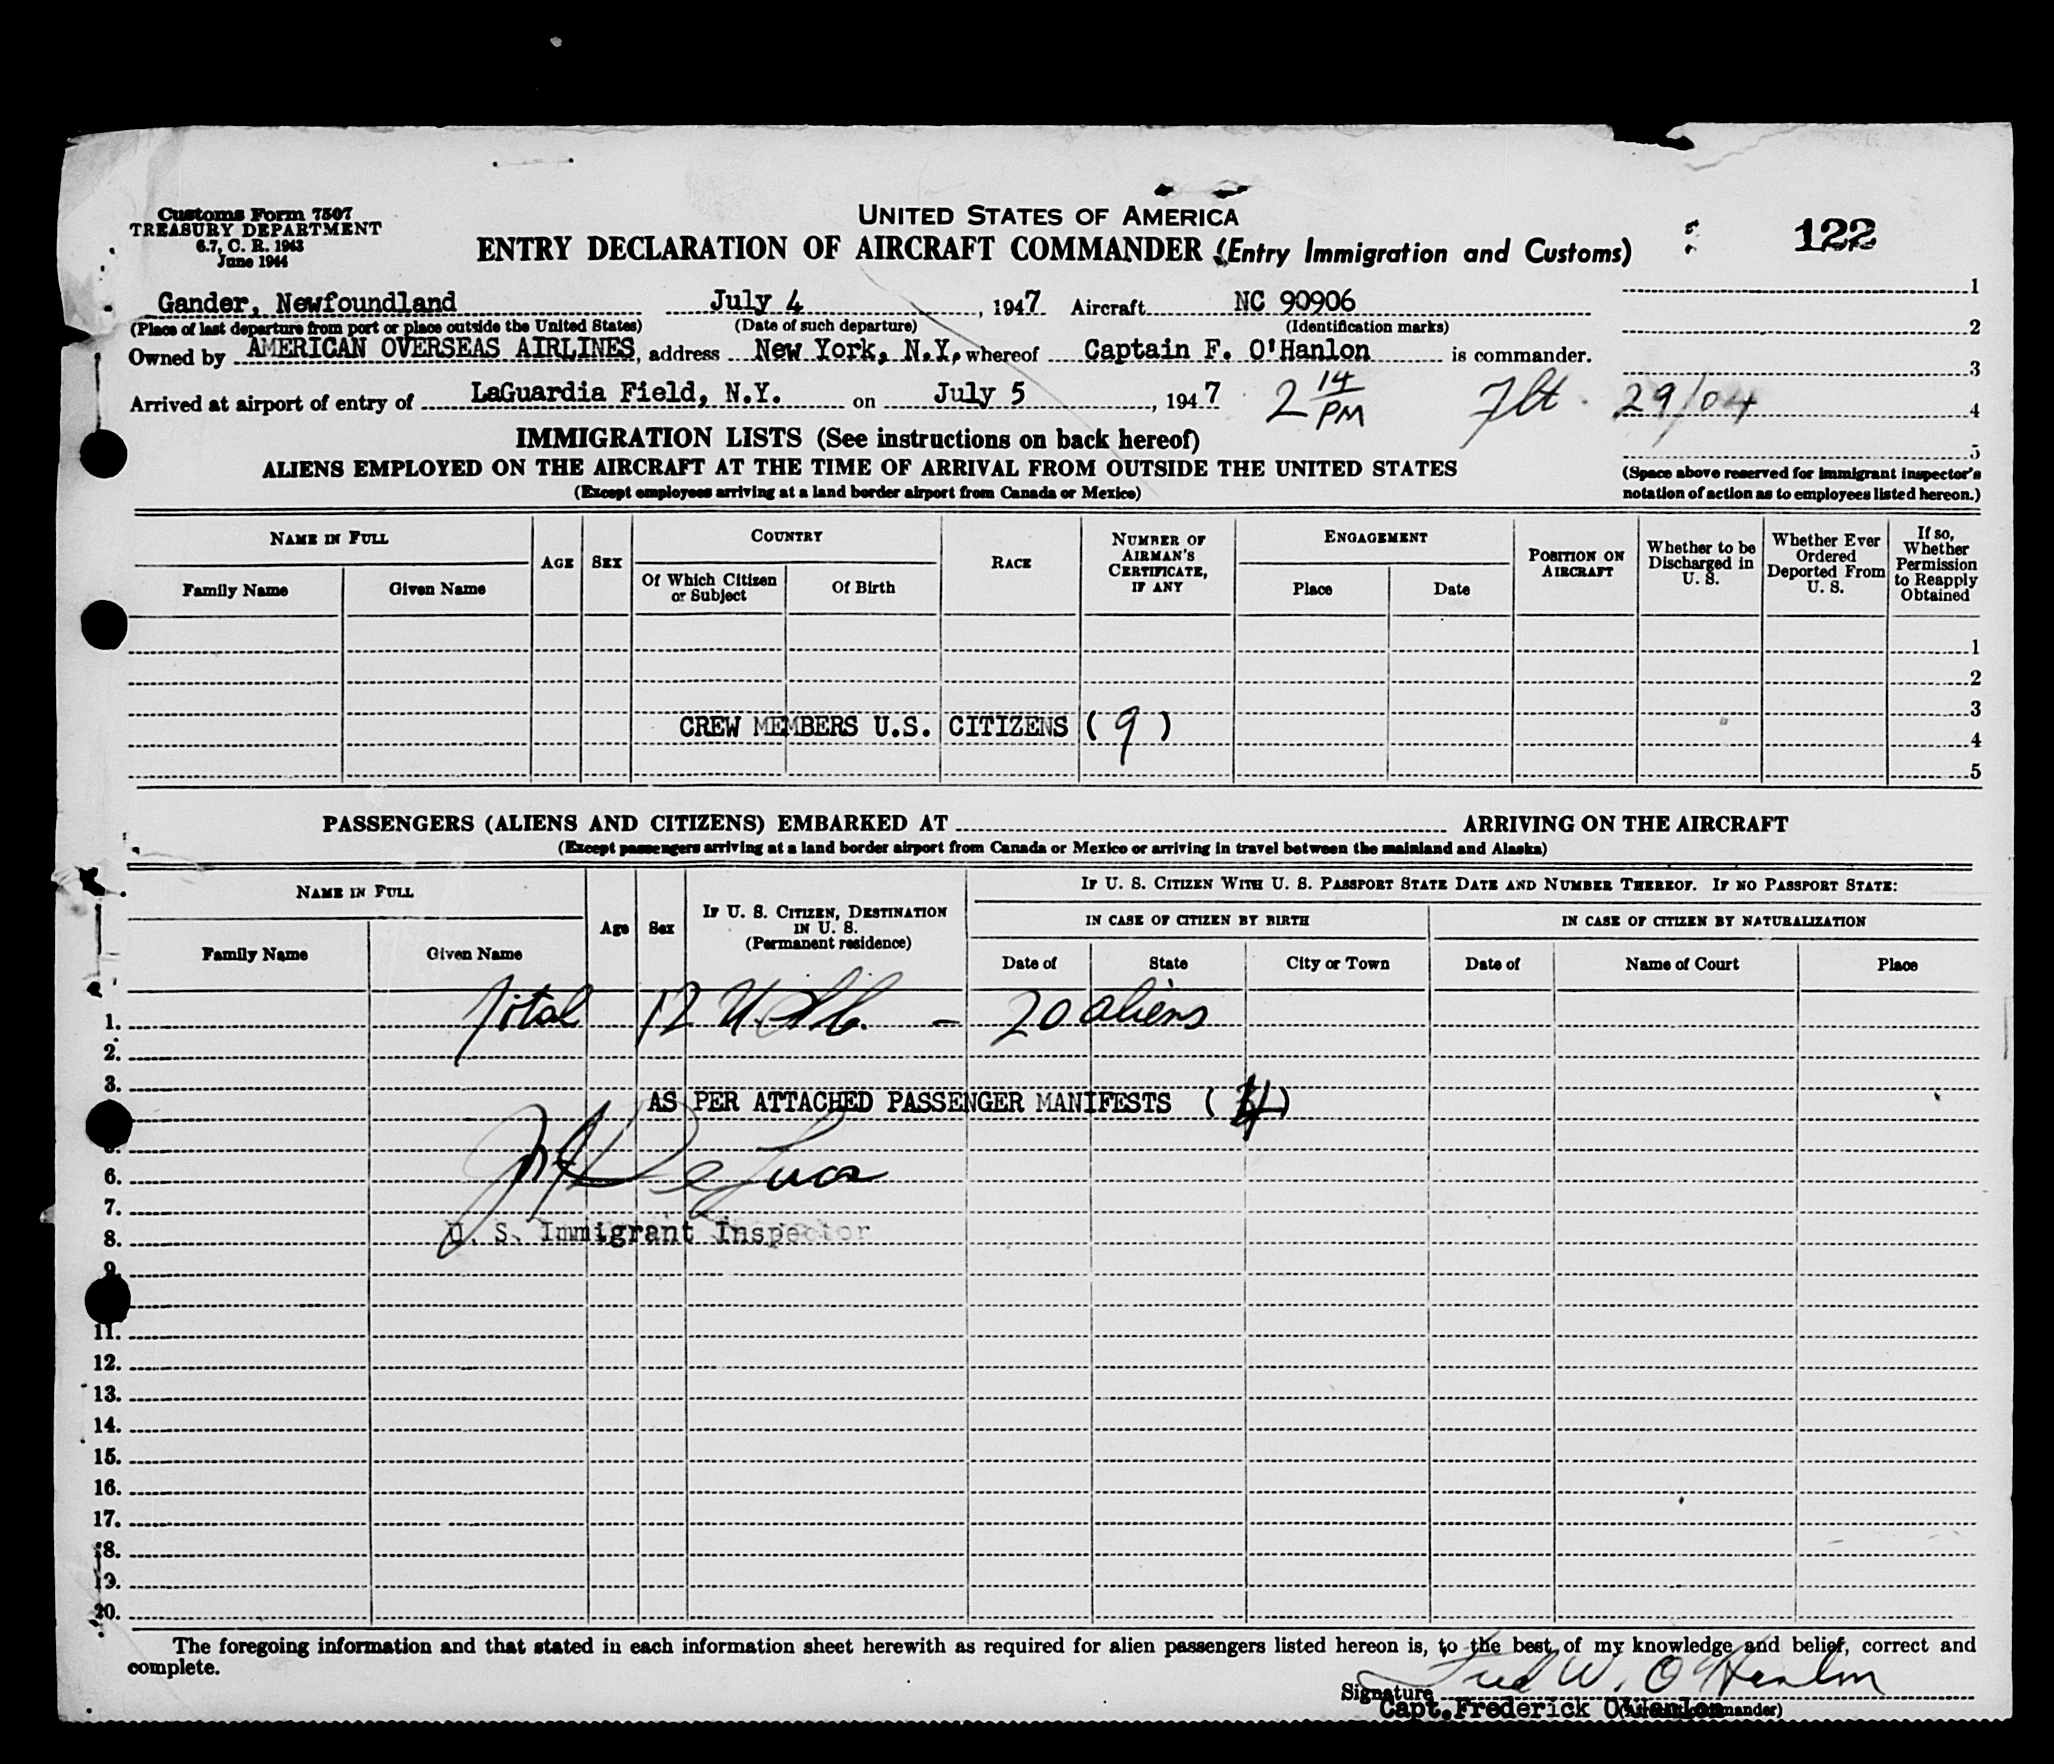 Customs Form 7507
TREASURY DEPARTMENT
6.7, C. R. 1943
June 1944
UNITED STATES OF AMERICA
ENTRY DECLARATION OF AIRCRAFT COMMANDER (Entry Immigration and Customs)
122
Gander, Newfoundland July 4, 1947 Aircraft NC 90906
(Place of last departure from port or place outside the United States) (Date of such departure) (Identification marks)
Owned by AMERICAN OVERSEAS AIRLINES, address New York, N.Y, whereof Captain F. O'Hanlon is commander.
Arrived at airport of entry of LaGuardia Field, N.Y. on July 5, 1947 2 14 PM Flt. 29/04
1
2
3
4
5
(Space above reserved for immigrant inspector's
notation of action as to employees listed hereon.)
IMMIGRATION LISTS (See instructions on back hereof)
ALIENS EMPLOYED ON THE AIRCRAFT AT THE TIME OF ARRIVAL FROM OUTSIDE THE UNITED STATES
(Except employees arriving at a land border airport from Canada or Mexico)
NAME IN FULL
Family Name
Given Name
AGE
SEX
COUNTRY
Of Which Citizen
or Subject
Of Birth
RACE
NUMBER OF
AIRMAN'S
CERTIFICATE,
IF ANY
ENGAGEMENT
Place
Date
POSITION ON
AIRCRAFT
Whether to be
Discharged in
U. S.
Whether Ever
Ordered
Deported From
U. S.
If so,
Whether
Permission
to Reapply
Obtained
1
2
3
CREW MEMBERS U.S. CITIZENS (9)
4
5
PASSENGERS (ALIENS AND CITIZENS) EMBARKED AT ARRIVING ON THE AIRCRAFT
(Except passengers arriving at a land border airport from Canada or Mexico or arriving in travel between the mainland and Alaska)
NAME IN FULL
Family Name
Given Name
Age
Sex
IF U. S. CITIZEN, DESTINATION
IN U. S.
(Permanent residence)
IF U. S. CITIZEN WITH U. S. PASSPORT STATE DATE AND NUMBER THEREOF. IF NO PASSPORT STATE:
IN CASE OF CITIZEN BY BIRTH
IN CASE OF CITIZEN BY NATURALIZATION
Date of
State
City or Town
Date of
Name of Court
Place
1. Total 12 U.S.C. - 20 aliens
2.
3.
AS PER ATTACHED PASSENGER MANIFESTS (4)
6.
7.
8. U. S. Immigrant Inspector
9.
11.
12.
13.
14.
15.
16.
17.
18.
19.
20.
The foregoing information and that stated in each information sheet herewith as required for alien passengers listed hereon is, to the best of my knowledge and belief, correct and
complete.
Signature Fred W. O'Hanlon
Capt. Frederick O'Hanlon